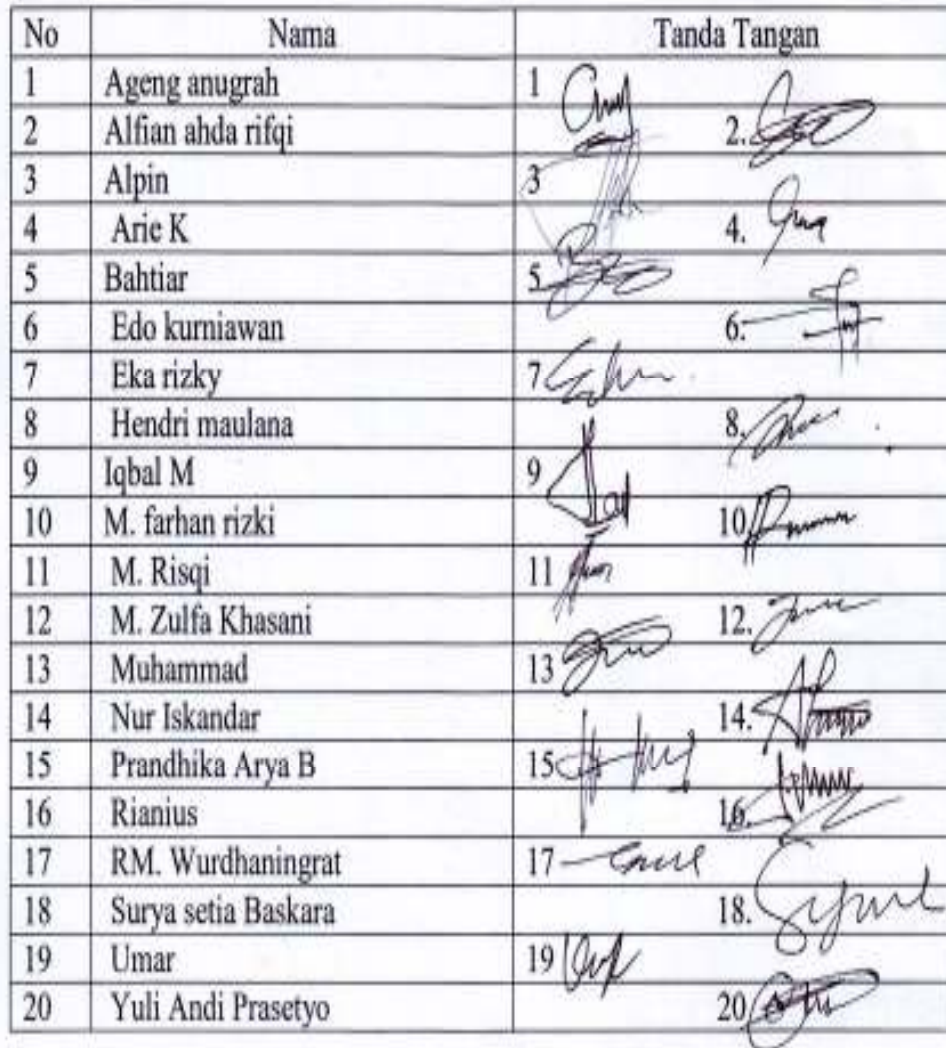 No Nama Tanda Tangan
1 Ageng anugrah 1
2 Alfian ahda rifqi 2.
3 Alpin 3
4 Arie K 4.
5 Bahtiar 5
6 Edo kurniawan 6.
7 Eka rizky 7
8 Hendri maulana 8.
9 Iqbal M 9
10 M. farhan rizki 10
11 M. Risqi 11
12 M. Zulfa Khasani 12.
13 Muhammad 13
14 Nur Iskandar 14.
15 Prandhika Arya B 15
16 Rianius 16.
17 RM. Wurdhaningrat 17
18 Surya setia Baskara 18.
19 Umar 19
20 Yuli Andi Prasetyo 20